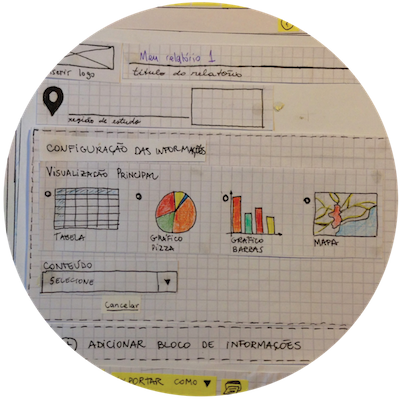 logo
Meu relatório 1
título do relatório
região de estudo
CONFIGURAÇÃO DAS INFORMAÇÕES
VISUALIZAÇÃO PRINCIPAL
TABELA
GRÁFICO
PIZZA
GRÁFICO
BARRAS
MAPA
CONTEÚDO
SELECIONE
Cancelar
ADICIONAR BLOCO DE INFORMAÇÕES
COMO